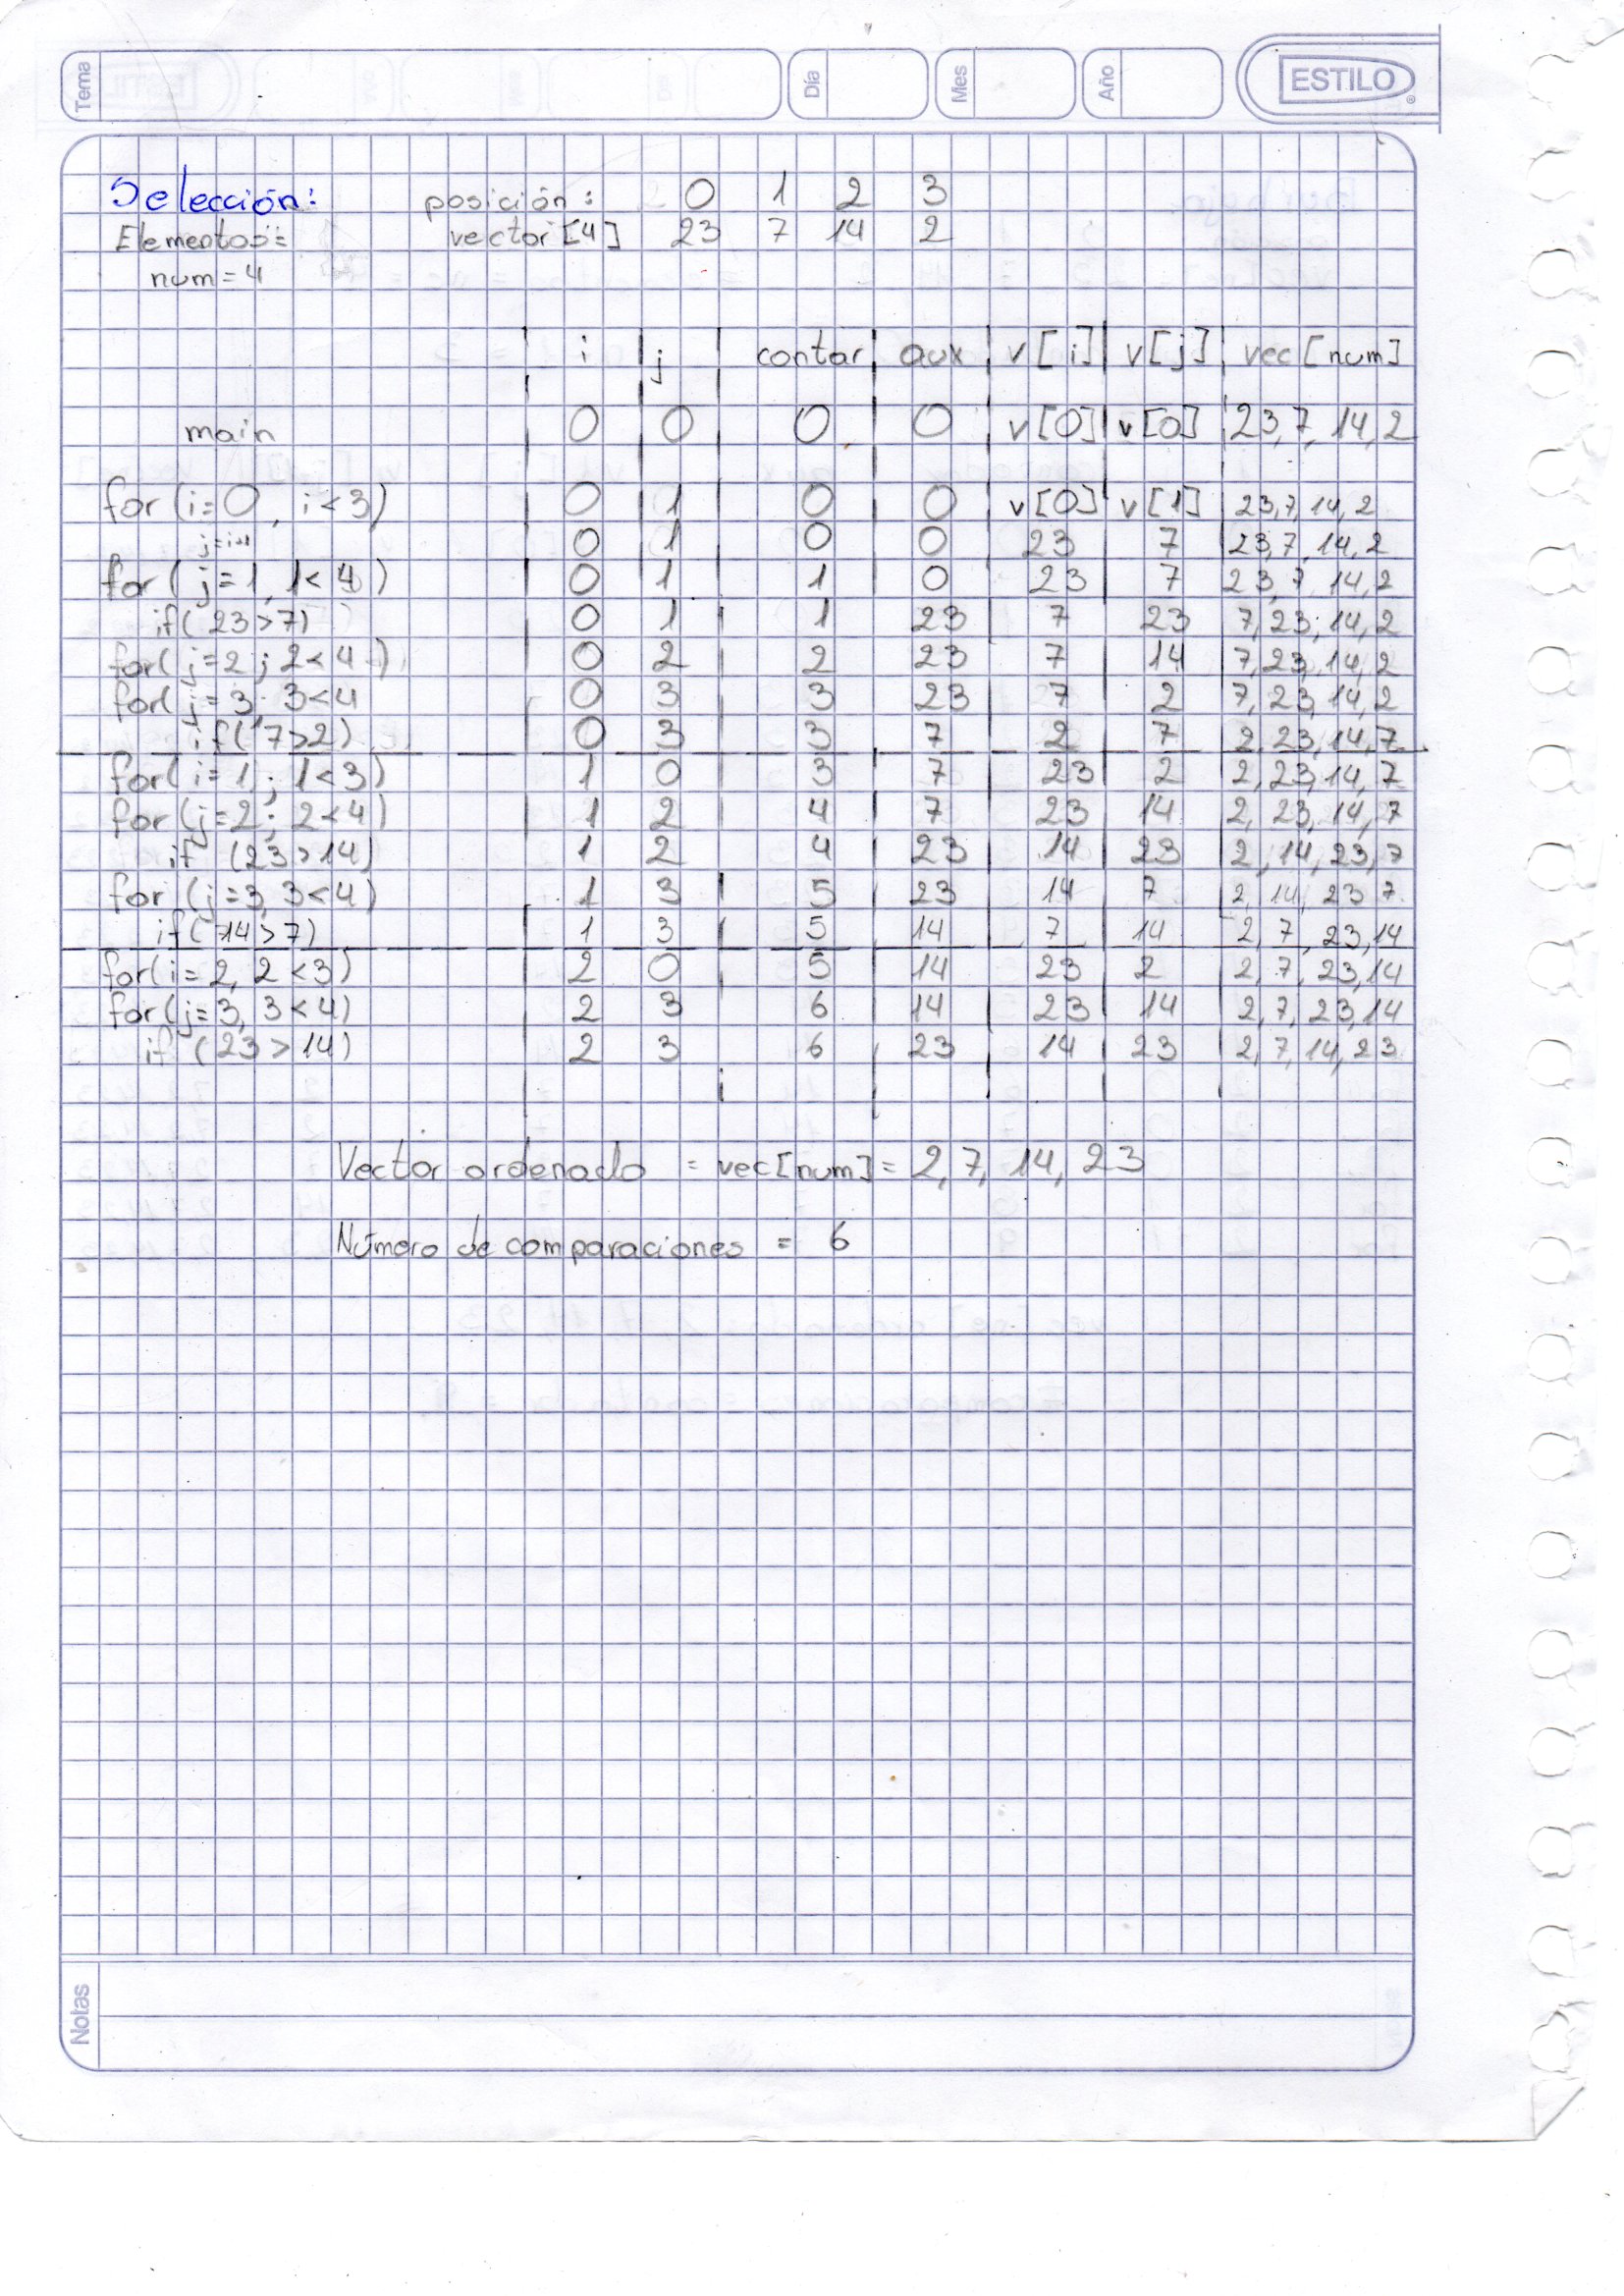 Tema Día Mes Año ESTILO
Selección: posición: 0 1 2 3
Elementos= vector[4] 23 7 14 2
num=4
i j contar aux v[i] v[j] vec[num]
main 0 0 0 0 v[0] v[0] 23,7,14,2
for(i=0, i<3) 0 1 0 0 v[0] v[1] 23,7,14,2
j=i+1 0 1 0 0 23 7 23,7,14,2
for(j=1, 1<4) 0 1 1 0 23 7 23,7,14,2
if(23>7) 0 1 1 23 7 23 7,23,14,2
for(j=2; 2<4) 0 2 2 23 7 14 7,23,14,2
for(j=3; 3<4 0 3 3 23 7 2 7,23,14,2
if(7>2) 0 3 3 7 2 7 2,23,14,7
for(i=1; 1<3) 1 0 3 7 23 2 2,23,14,7
for(j=2; 2<4) 1 2 4 7 23 14 2,23,14,7
if (23>14) 1 2 4 23 14 23 2,14,23,7
for (j=3, 3<4) 1 3 5 23 14 7 2,14,23 7
if(14>7) 1 3 5 14 7 14 2,7,23,14
for(i=2, 2<3) 2 0 5 14 23 2 2,7,23,14
for(j=3, 3<4) 2 3 6 14 23 14 2,7,23,14
if (23>14) 2 3 6 23 14 23 2,7,14,23
Vector ordenado = vec[num]= 2,7,14,23
Número de comparaciones = 6
Notas